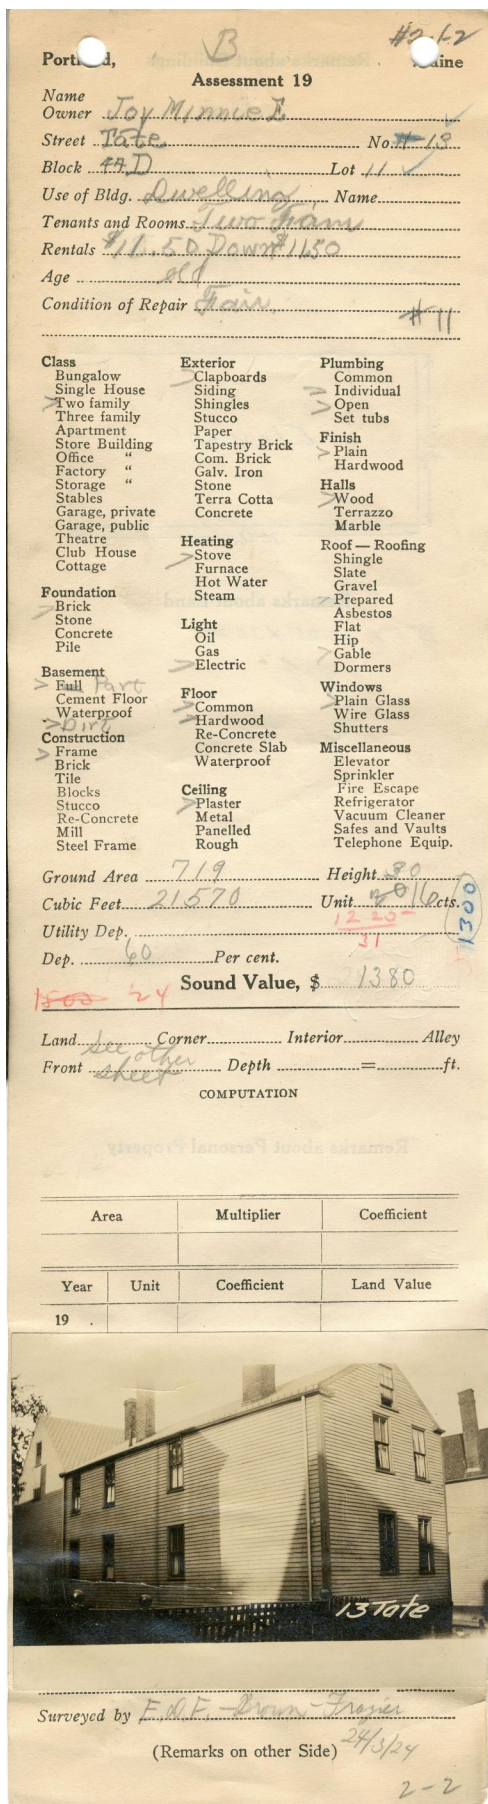 B #2-1-2
Portland, Maine
Assessment 19
Name
Owner Joy Minnie E
Street Tate No. 13
Block 44 D Lot 11
Use of Bldg. Dwelling Name
Tenants and Rooms Two Fam
Rentals $11.50 Down $11.50
Age old
Condition of Repair Fair
#11
Class
Bungalow
Single House
Two family
Three family
Apartment
Store Building
Office "
Factory "
Storage "
Stables
Garage, private
Garage, public
Theatre
Club House
Cottage
Foundation
Brick
Stone
Concrete
Pile
Basement
Full Part
Cement Floor
Waterproof
Dirt
Construction
Frame
Brick
Tile
Blocks
Stucco
Re-Concrete
Mill
Steel Frame
Exterior
Clapboards
Siding
Shingles
Stucco
Paper
Tapestry Brick
Com. Brick
Galv. Iron
Stone
Terra Cotta
Concrete
Heating
Stove
Furnace
Hot Water
Steam
Light
Oil
Gas
Electric
Floor
Common
Hardwood
Re-Concrete
Concrete Slab
Waterproof
Ceiling
Plaster
Metal
Panelled
Rough
Plumbing
Common
Individual
Open
Set tubs
Finish
Plain
Hardwood
Halls
Wood
Terrazzo
Marble
Roof — Roofing
Shingle
Slate
Gravel
Prepared
Asbestos
Flat
Hip
Gable
Dormers
Windows
Plain Glass
Wire Glass
Shutters
Miscellaneous
Elevator
Sprinkler
Fire Escape
Refrigerator
Vacuum Cleaner
Safes and Vaults
Telephone Equip.
Ground Area 719 Height 30
Cubic Feet 21570 Unit 16 cts.
1300
12 25-
31
Utility Dep.
Dep. 60 Per cent.
Sound Value, $ 1380
1500 '24
Land Corner Interior Alley
See other
Front Depth = ft.
sheet
COMPUTATION
Area Multiplier Coefficient
Year Unit Coefficient Land Value
19 .
13 Tate
Surveyed by E.D.F. - Brown - Frazier
(Remarks on other Side) 24/3/24
2-2